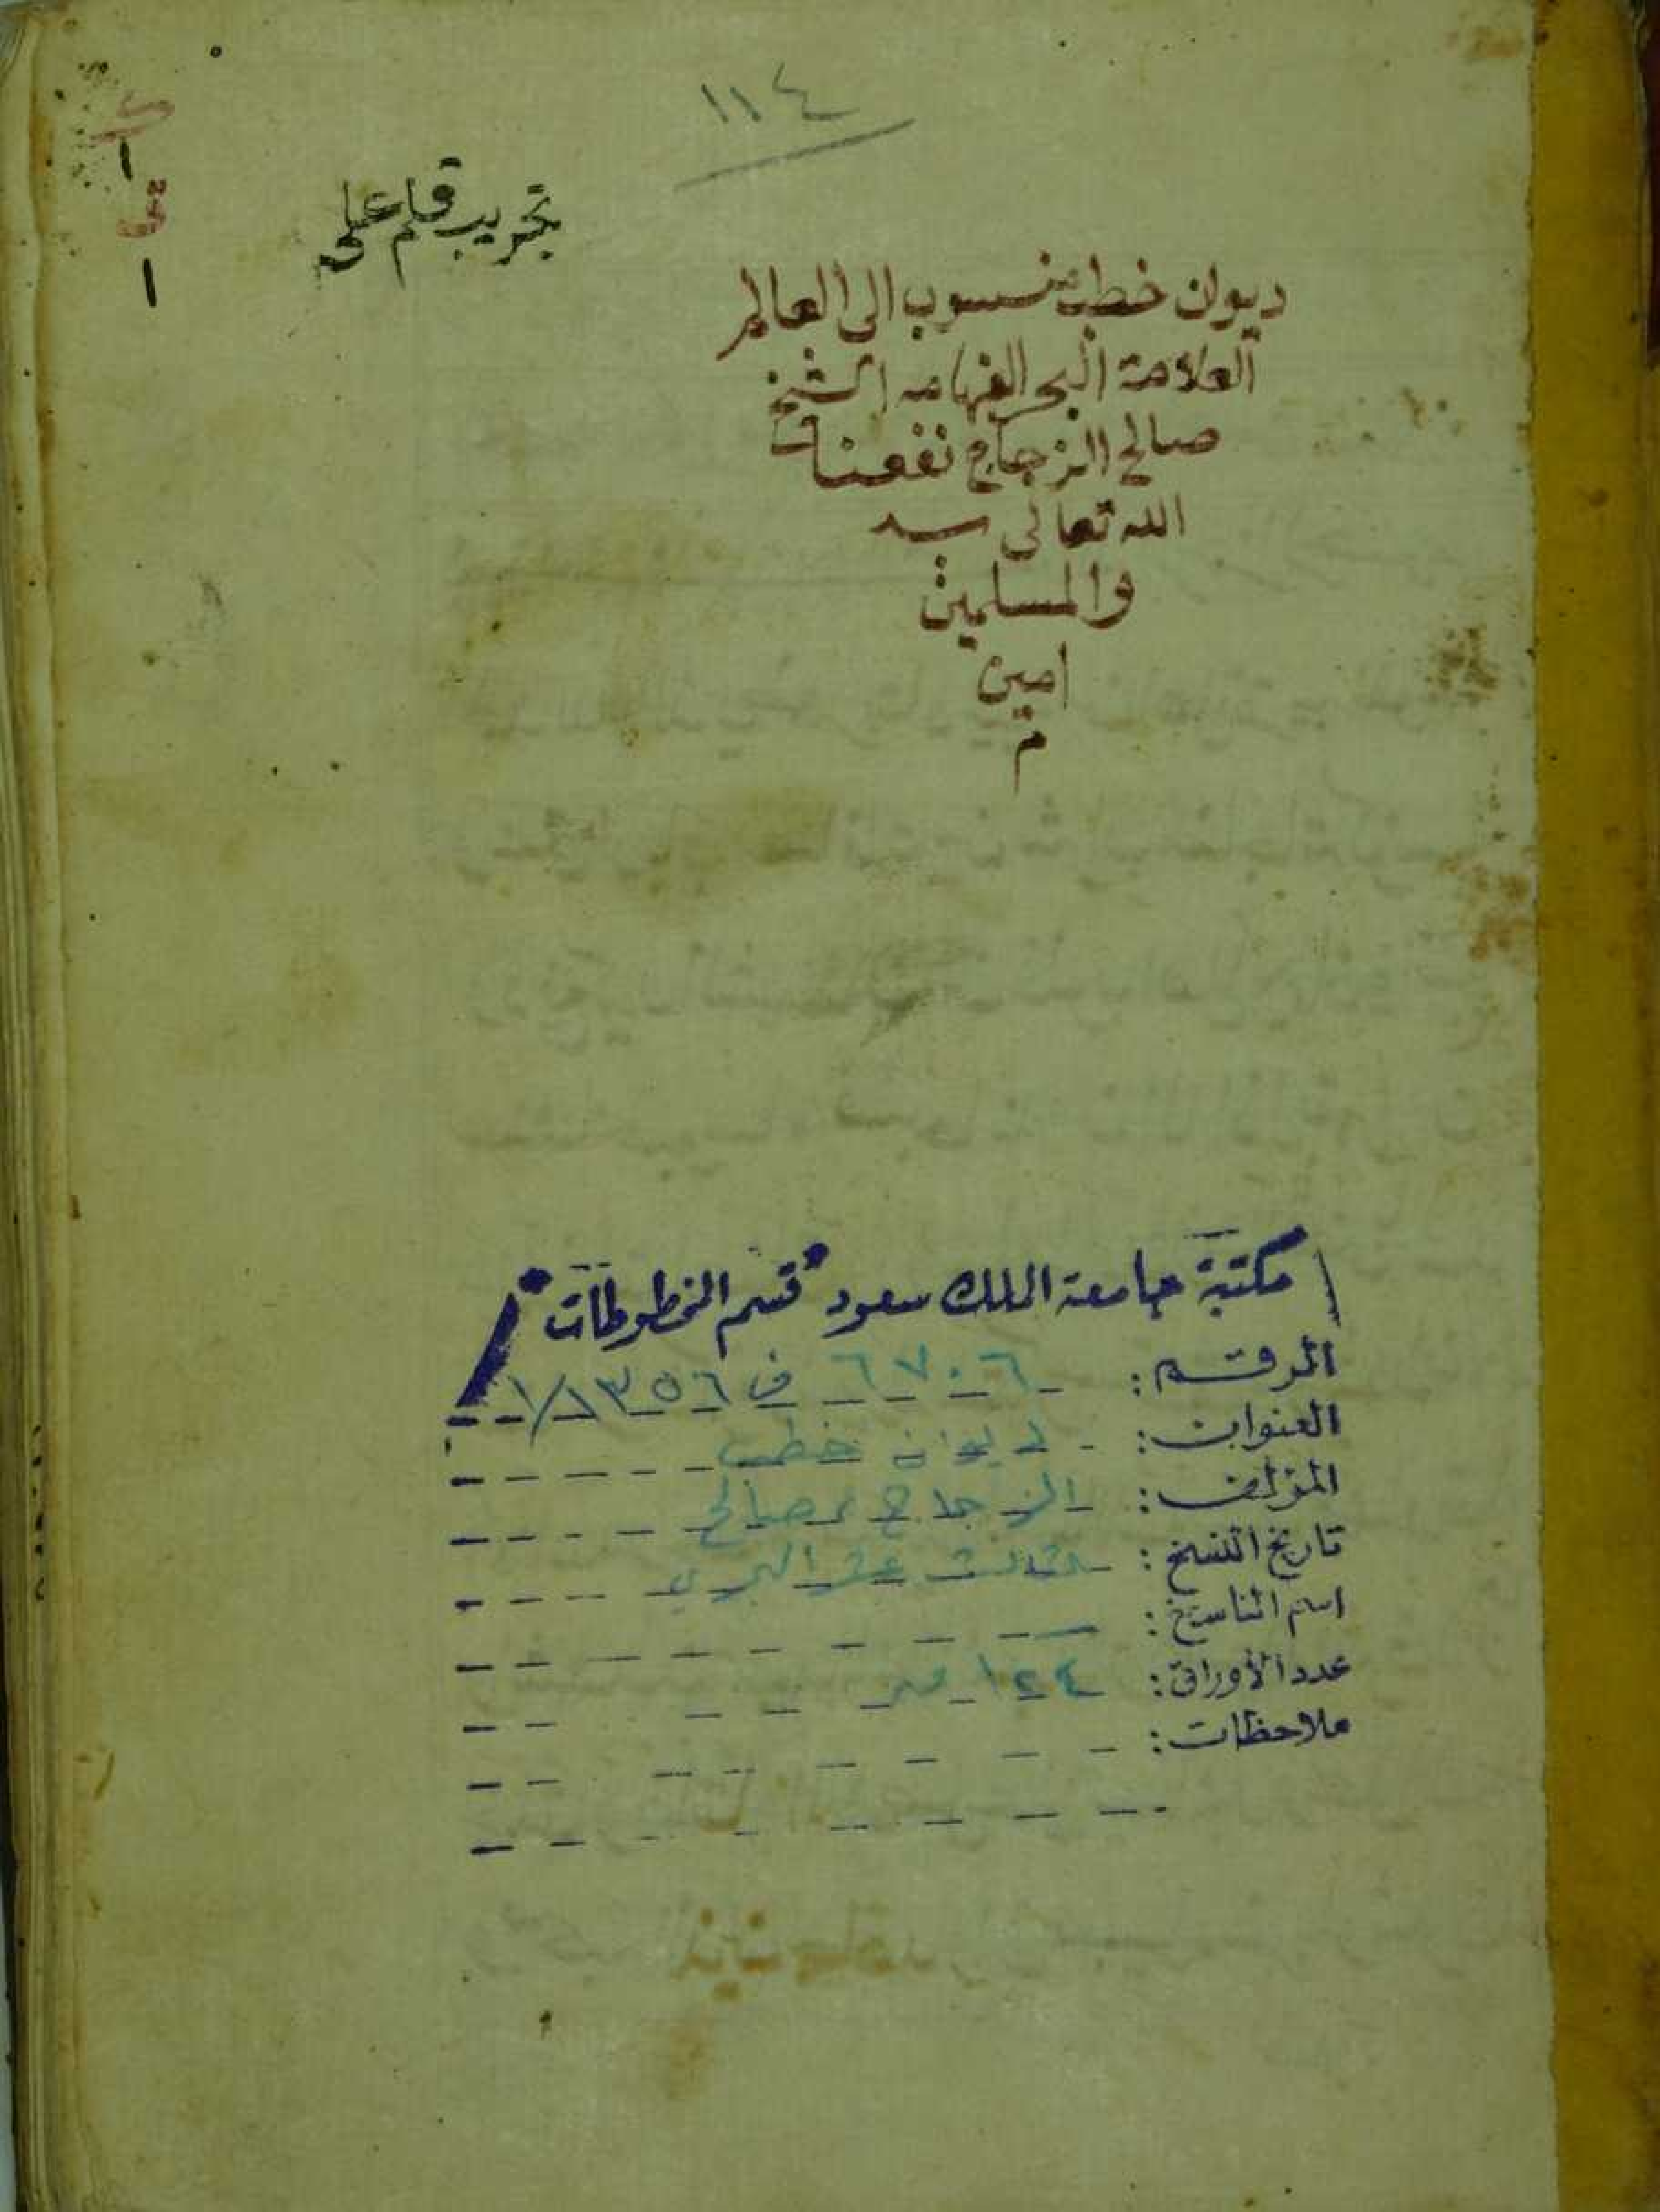 ١١٤
تجريب قلم على
ديوان خطب منسوب الى العالم
العلامة البحر الفهامه الشيخ
صالح الزجاج نفعنا
الله تعالى به
والمسلمين
امين
م
مكتبة جامعة الملك سعود "قسم المخطوطات"
الرقم: ٦٧٠٦ ف ١/١٣٥٦
العنوان: ديوان خطب
المؤلف: الزجاج، صالح
تاريخ النسخ: الثالث عشر الهجري
اسم الناسخ:
عدد الأوراق: ١٢٤
ملاحظات: